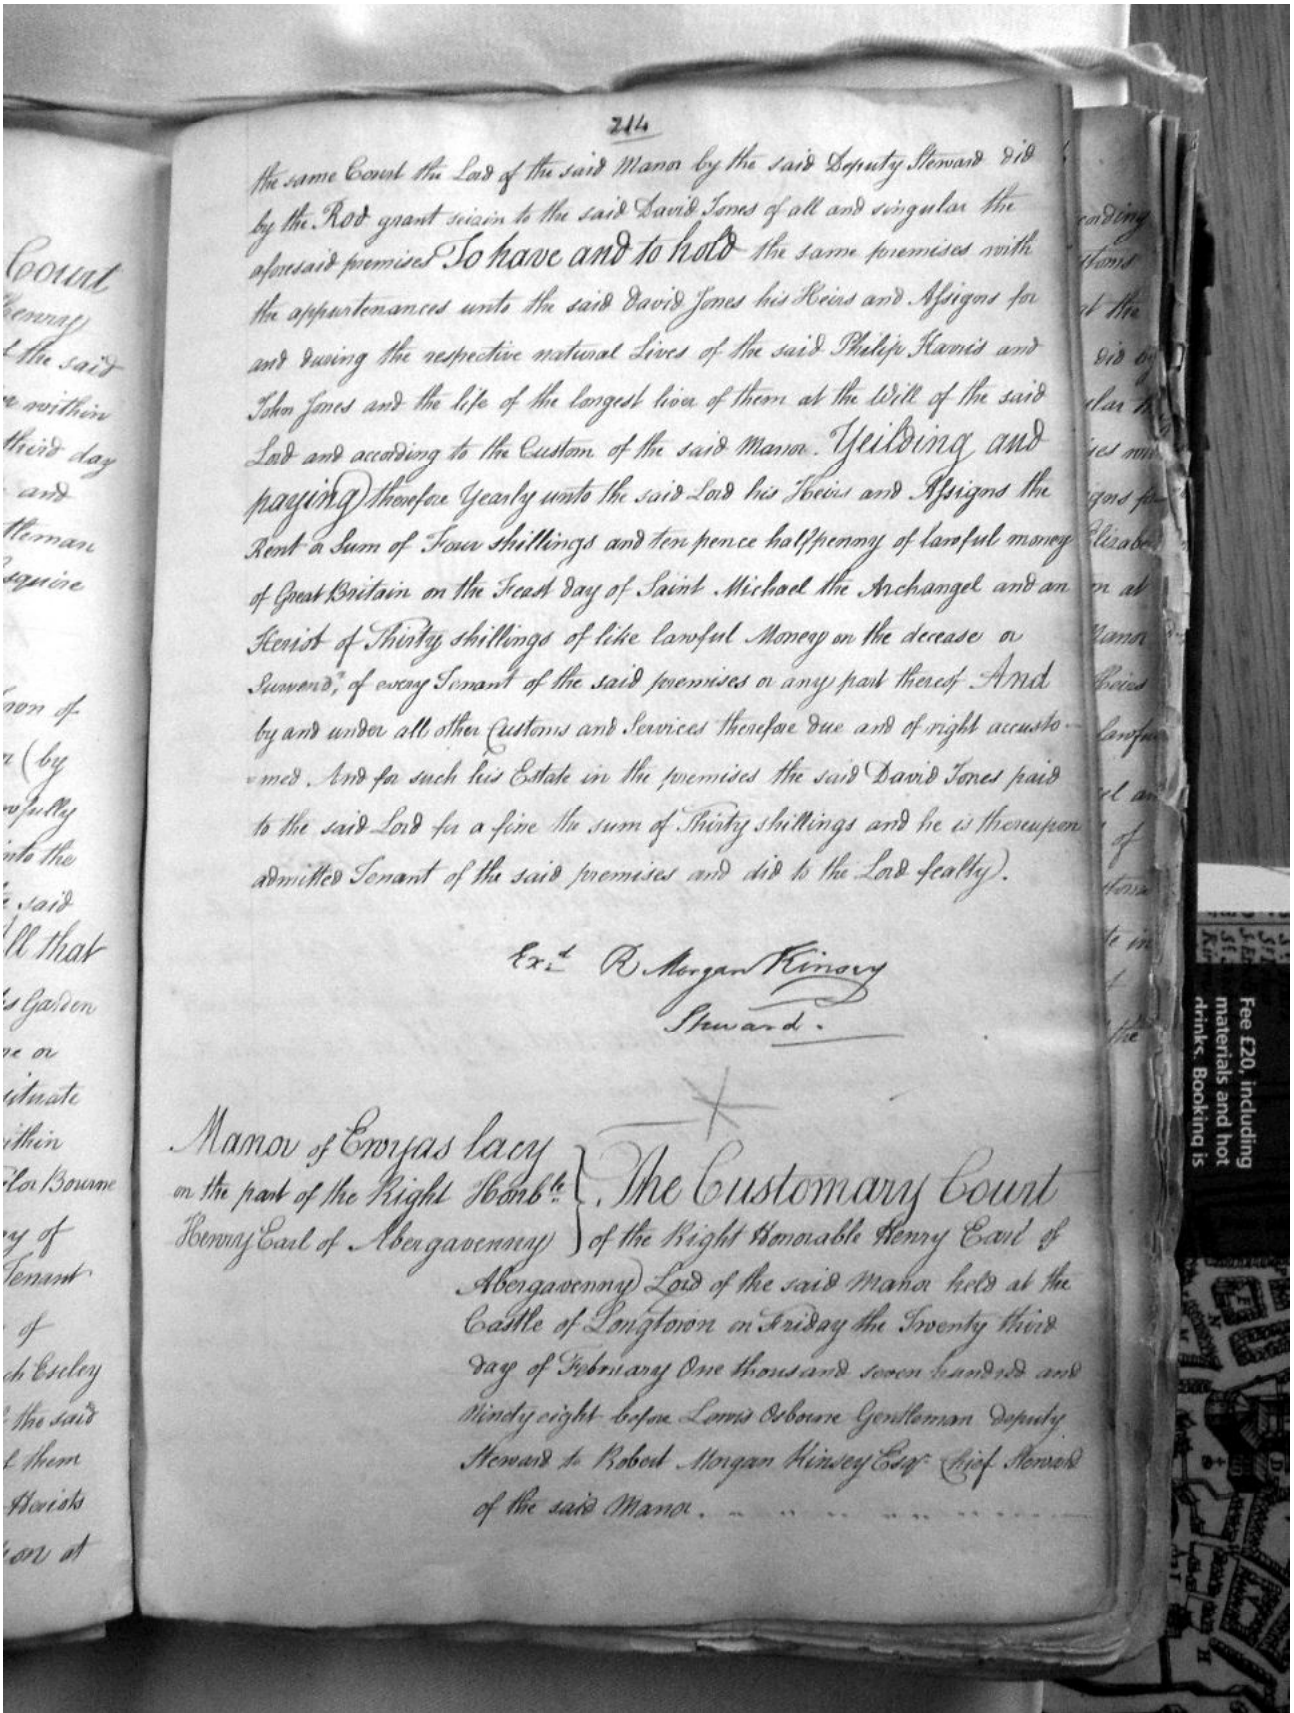 Court
Henry
f the said
r within
third day
and
tleman
squire
ron of
r (by
wfully
into the
e said
All that
s Garden
ne or
situate
ithin
Flor Bourne
ey of
Tenant
of
ch Escley
f the said
f them
Heriots
ion at
214
the same Court the Lord of the said Manor by the said Deputy Steward did
by the Rod grant seizin to the said David Jones of all and singular the
aforesaid premises To have and to hold the same premises with
the appurtenances unto the said David Jones his Heirs and Assigns for
and during the respective natural Lives of the said Philip Harris and
John Jones and the life of the longest liver of them at the Will of the said
Lord and according to the Custom of the said Manor. Yeilding and
paying therefore Yearly unto the said Lord his Heirs and Assigns the
Rent or Sum of Four shillings and ten pence halfpenny of lawful money
of Great Britain on the Feast day of Saint Michael the Archangel and an
Heriot of Thirty shillings of like lawful Money on the decease or
Surrendr. of every Tenant of the said premises or any part thereof And
by and under all other Customs and Services therefore due and of right accusto-
=med. And for such his Estate in the premises the said David Jones paid
to the said Lord for a fine the sum of Thirty shillings and he is thereupon
admitted Tenant of the said premises and did to the Lord fealty.
Exd. R Morgan Kinsey
Steward.
Manor of Ewyas lacy
on the part of the Right Honble.
Henry Earl of Abergavenny
The Customary Court
of the Right Honorable Henry Earl of
Abergavenny Lord of the said Manor held at the
Castle of Longtown on Friday the Twenty third
day of February One thousand seven hundred and
Ninety eight before Lewis Osborne Gentleman deputy
Steward to Robert Morgan Kinsey Esqr. Chief Steward
of the said Manor.
cording
stoms
at the
did by
ular th
ises with
igns for
Elizabeth
m at
Manor
Heirs
lawful
el an
of
te in
the
Fee £20, including
materials and hot
drinks. Booking is